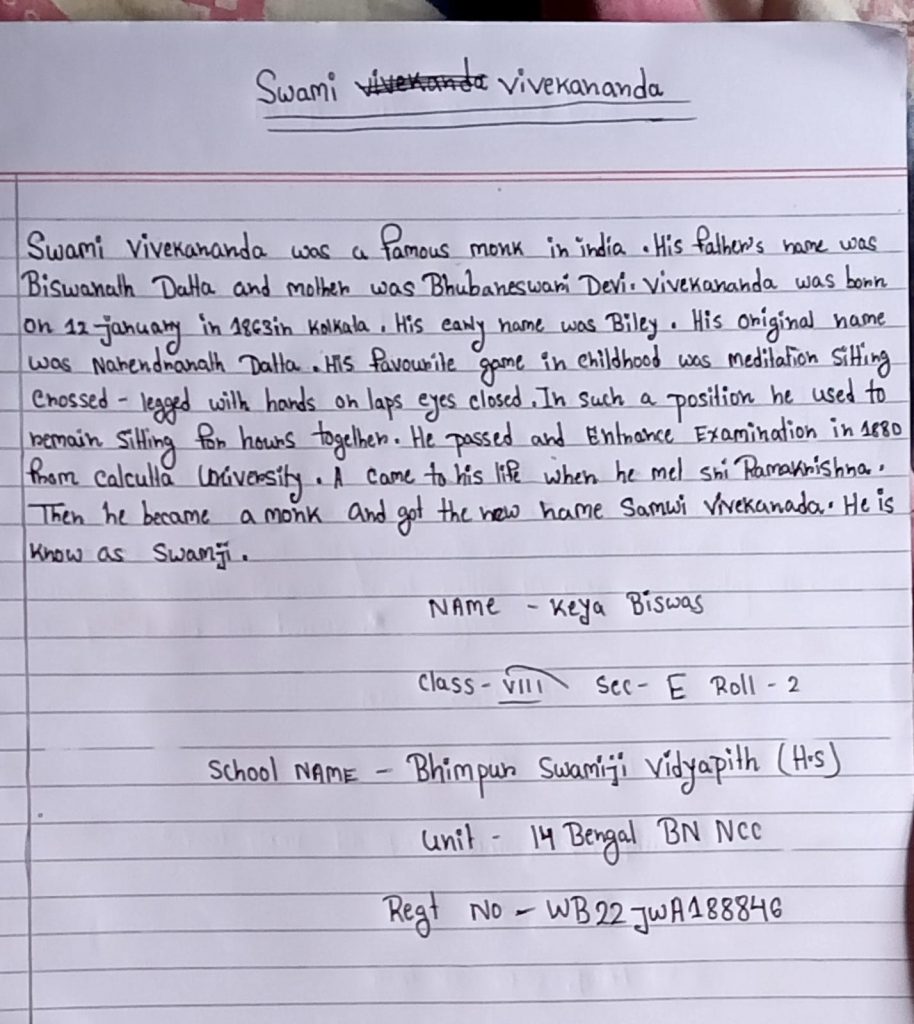 Swami vivekananda
Swami Vivekananda was a famous monk in india. His father's name was
Biswanath Datta and mother was Bhubaneswari Devi. Vivekananda was born
on 12 january in 1863in Kolkala. His early name was Biley. His original name
was Narendranath Datta. His favourite game in childhood was meditation sitting
crossed-legged with hands on laps eyes closed. In such a position he used to
remain sitting for hours together. He passed and Entrance Examination in 1880
from calcutta University. A came to his life when he met shri Ramakrishna.
Then he became a monk and got the new name Samwi Vivekanada. He is
know as Swamiji.
NAme - Keya Biswas
Class - VIII Sec - E Roll - 2
School NAME - Bhimpur Swamiji Vidyapith (H.S)
Unit - 14 Bengal BN NCC
Regt No - WB22JWA188846